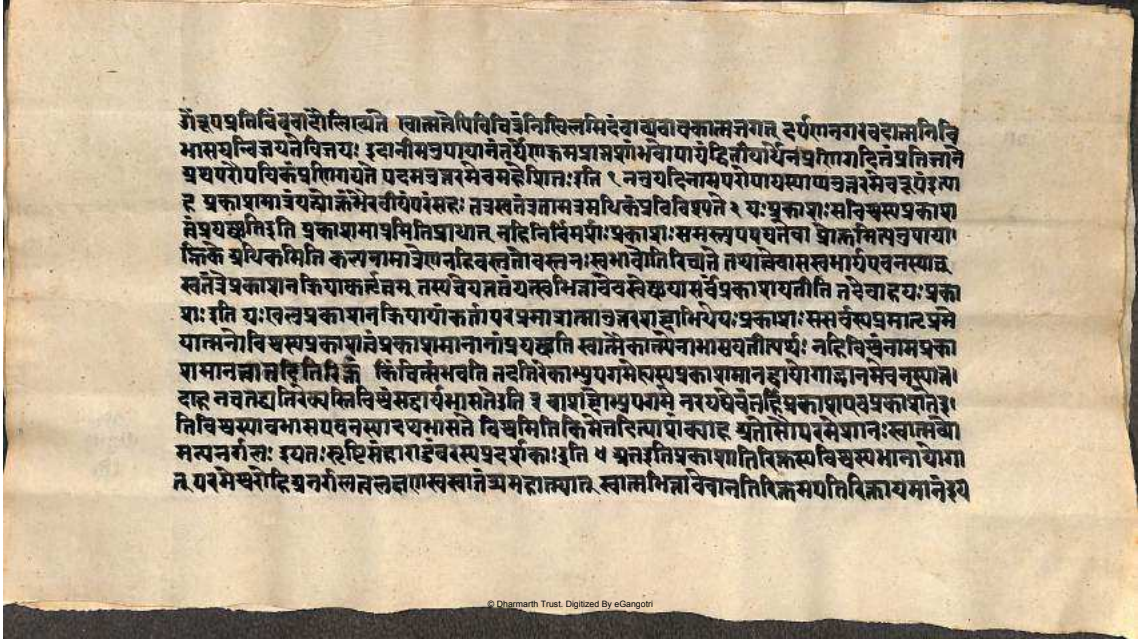 गंत्रूपप्रतिबिंबवादोलिख्यते स्वात्मन्येपिविचित्रंनिखिलमिदंवाच्यवाचकात्मजगत् दर्पणनगरवदात्मनिवि
भासयन्विजयतेविजयः इदानीमनुपायानंतर्येणक्रमप्राप्तशांभवोपायंद्वितीयार्धेनप्रणिगदितुंप्रतिजानीते
प्रथपरौपयिकंप्रणिगद्यते पदमनुत्तरमेवमहेशितुः इति १ ननुयदिनामपरोपायस्याप्यनुत्तरमेवरूपंइत्या
ह प्रकाशमात्रंयत्प्रोक्तंभैरवीयंपरंमहः तत्रस्वतंत्रतामात्रमधिकंप्रविविच्यते २ यःप्रकाशःसविश्वस्यप्रकाश
त्वंप्रयच्छतिइति प्रकाशमात्रमितिप्राधान्यात् नहिनिर्विमर्शःप्रकाशःसमस्त्युपपद्यतेवा प्रोक्तमित्यनुपाया
ह्निके अधिकमिति कल्पनामात्रेणनहिवस्तुतोवस्तुनःस्वभावोतिरिच्यते तथात्वेवासस्वभावएवनस्यात्
स्वतंत्रेप्रकाशनक्रियाकर्तृत्वम् तस्यचियत्तत्त्वंयत्स्वभित्तावेवस्वेच्छयासर्वंप्रकाशयतीति तदेवाहयःप्रका
शः इति यःखलुप्रकाशनक्रियायांकर्तापरप्रमात्रात्मानुत्तरशब्दाभिधेयःप्रकाशः ससर्वस्यप्रमातृप्रमे
यात्मनोविश्वस्यप्रकाशत्वंप्रकाशमानतांप्रयच्छति स्वात्मैकात्म्येनावभासयतीत्यर्थः नहिविश्वंनामप्रका
शमानत्वात्तदतिरिक्तं किंचित्संभवति तदतिरेकाभ्युपगमेत्वस्यप्रकाशमानत्वायोगाद्भानमेवनस्यात्त
दाह नचतद्व्यतिरेक्यस्तिविश्वंसद्वावभासतेइति ३ वाशब्दोभ्युपगमे नन्वयद्येवंतर्हिप्रकाशएवप्रकाशेतइ
तिविश्वस्यावभासएवनस्यादथभासते विश्वमितिकिमेतदित्याशंक्याह अतोसौपरमेशानःस्वात्मव्यो
मन्यनर्गलः इयतःसृष्टिसंहाराडंबरस्यप्रदर्शकः इति ४ अतइतिप्रकाशातिरिक्तस्यविश्वस्यभानायोगा
त् परमेश्वरोहिअनर्गलत्वलक्षणस्वस्वातंत्र्यमहात्म्यात् स्वात्मभित्तावेवानतिरिक्तमप्यतिरिक्तायमानंइय
© Dharmarth Trust. Digitized By eGangotri